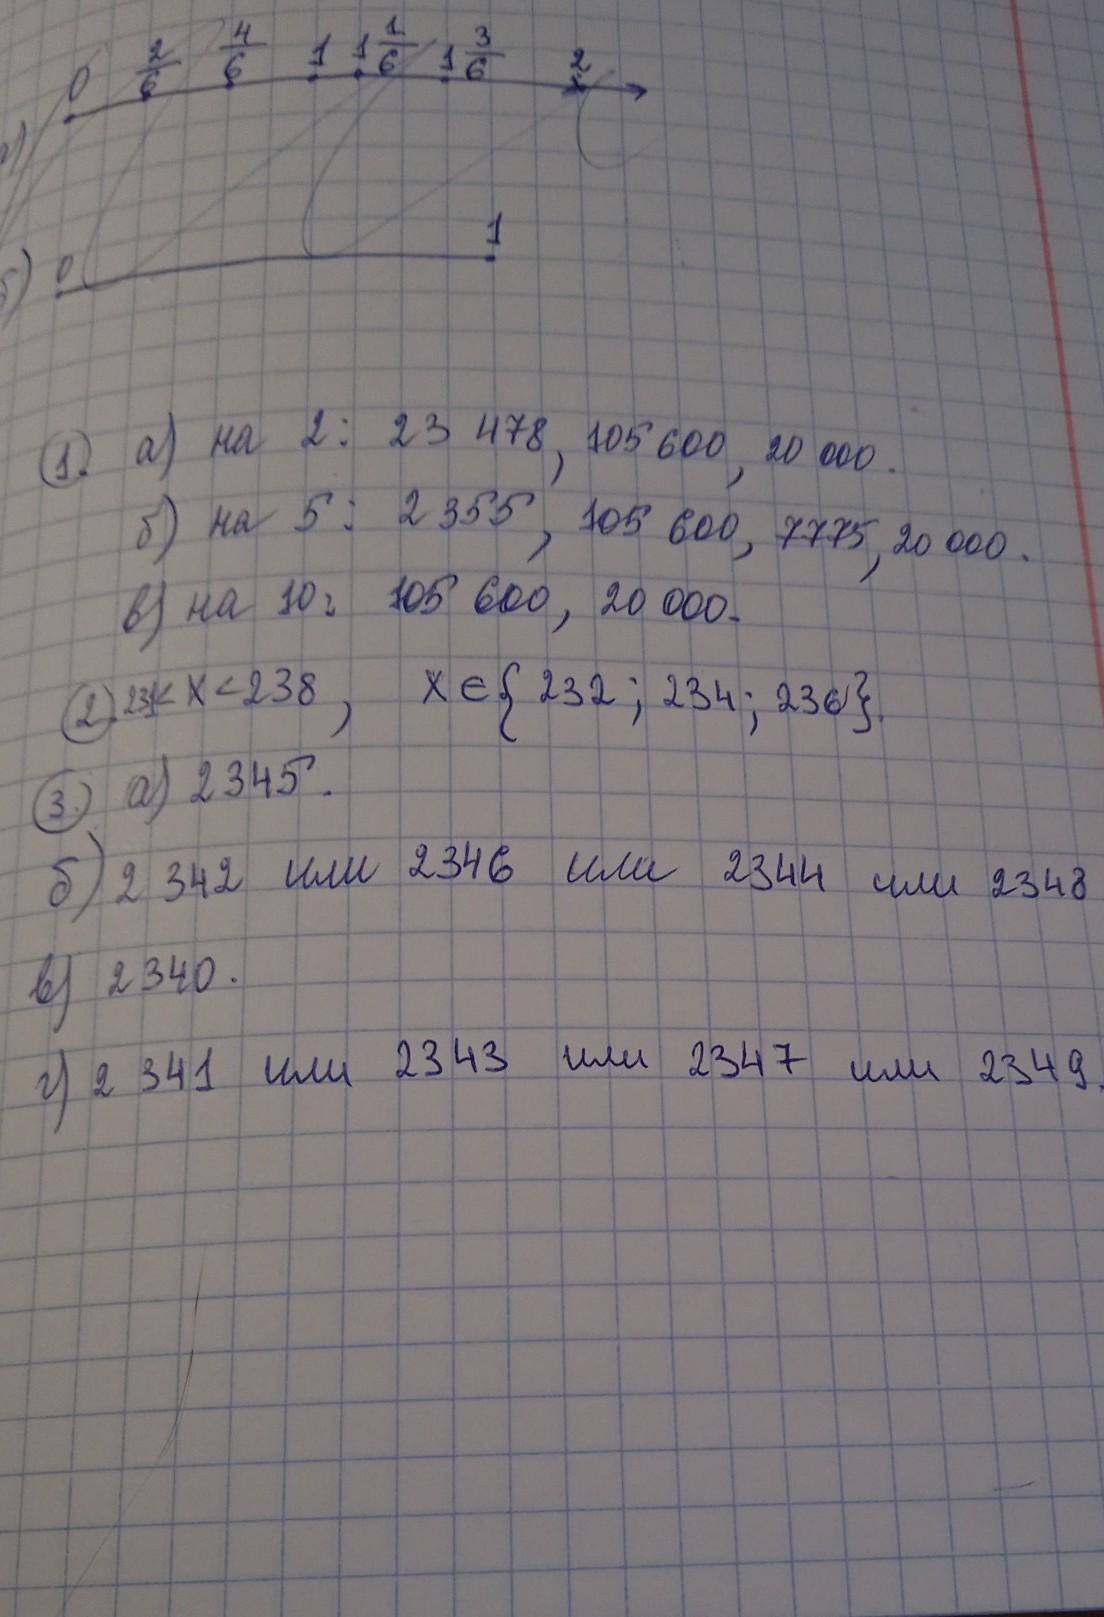 0 2/6 4/6 1 1 1/6 1 3/6 2
б) 0 1
1. а) на 2: 23 478, 105 600, 20 000.
б) на 5: 2 355, 105 600, 7775, 20 000.
в) на 10: 105 600, 20 000.
2. 231< x < 238, x ∈ { 232; 234; 236}.
3. а) 2345.
б) 2 342 или 2346 или 2344 или 2348
в) 2340.
г) 2 341 или 2343 или 2347 или 2349.